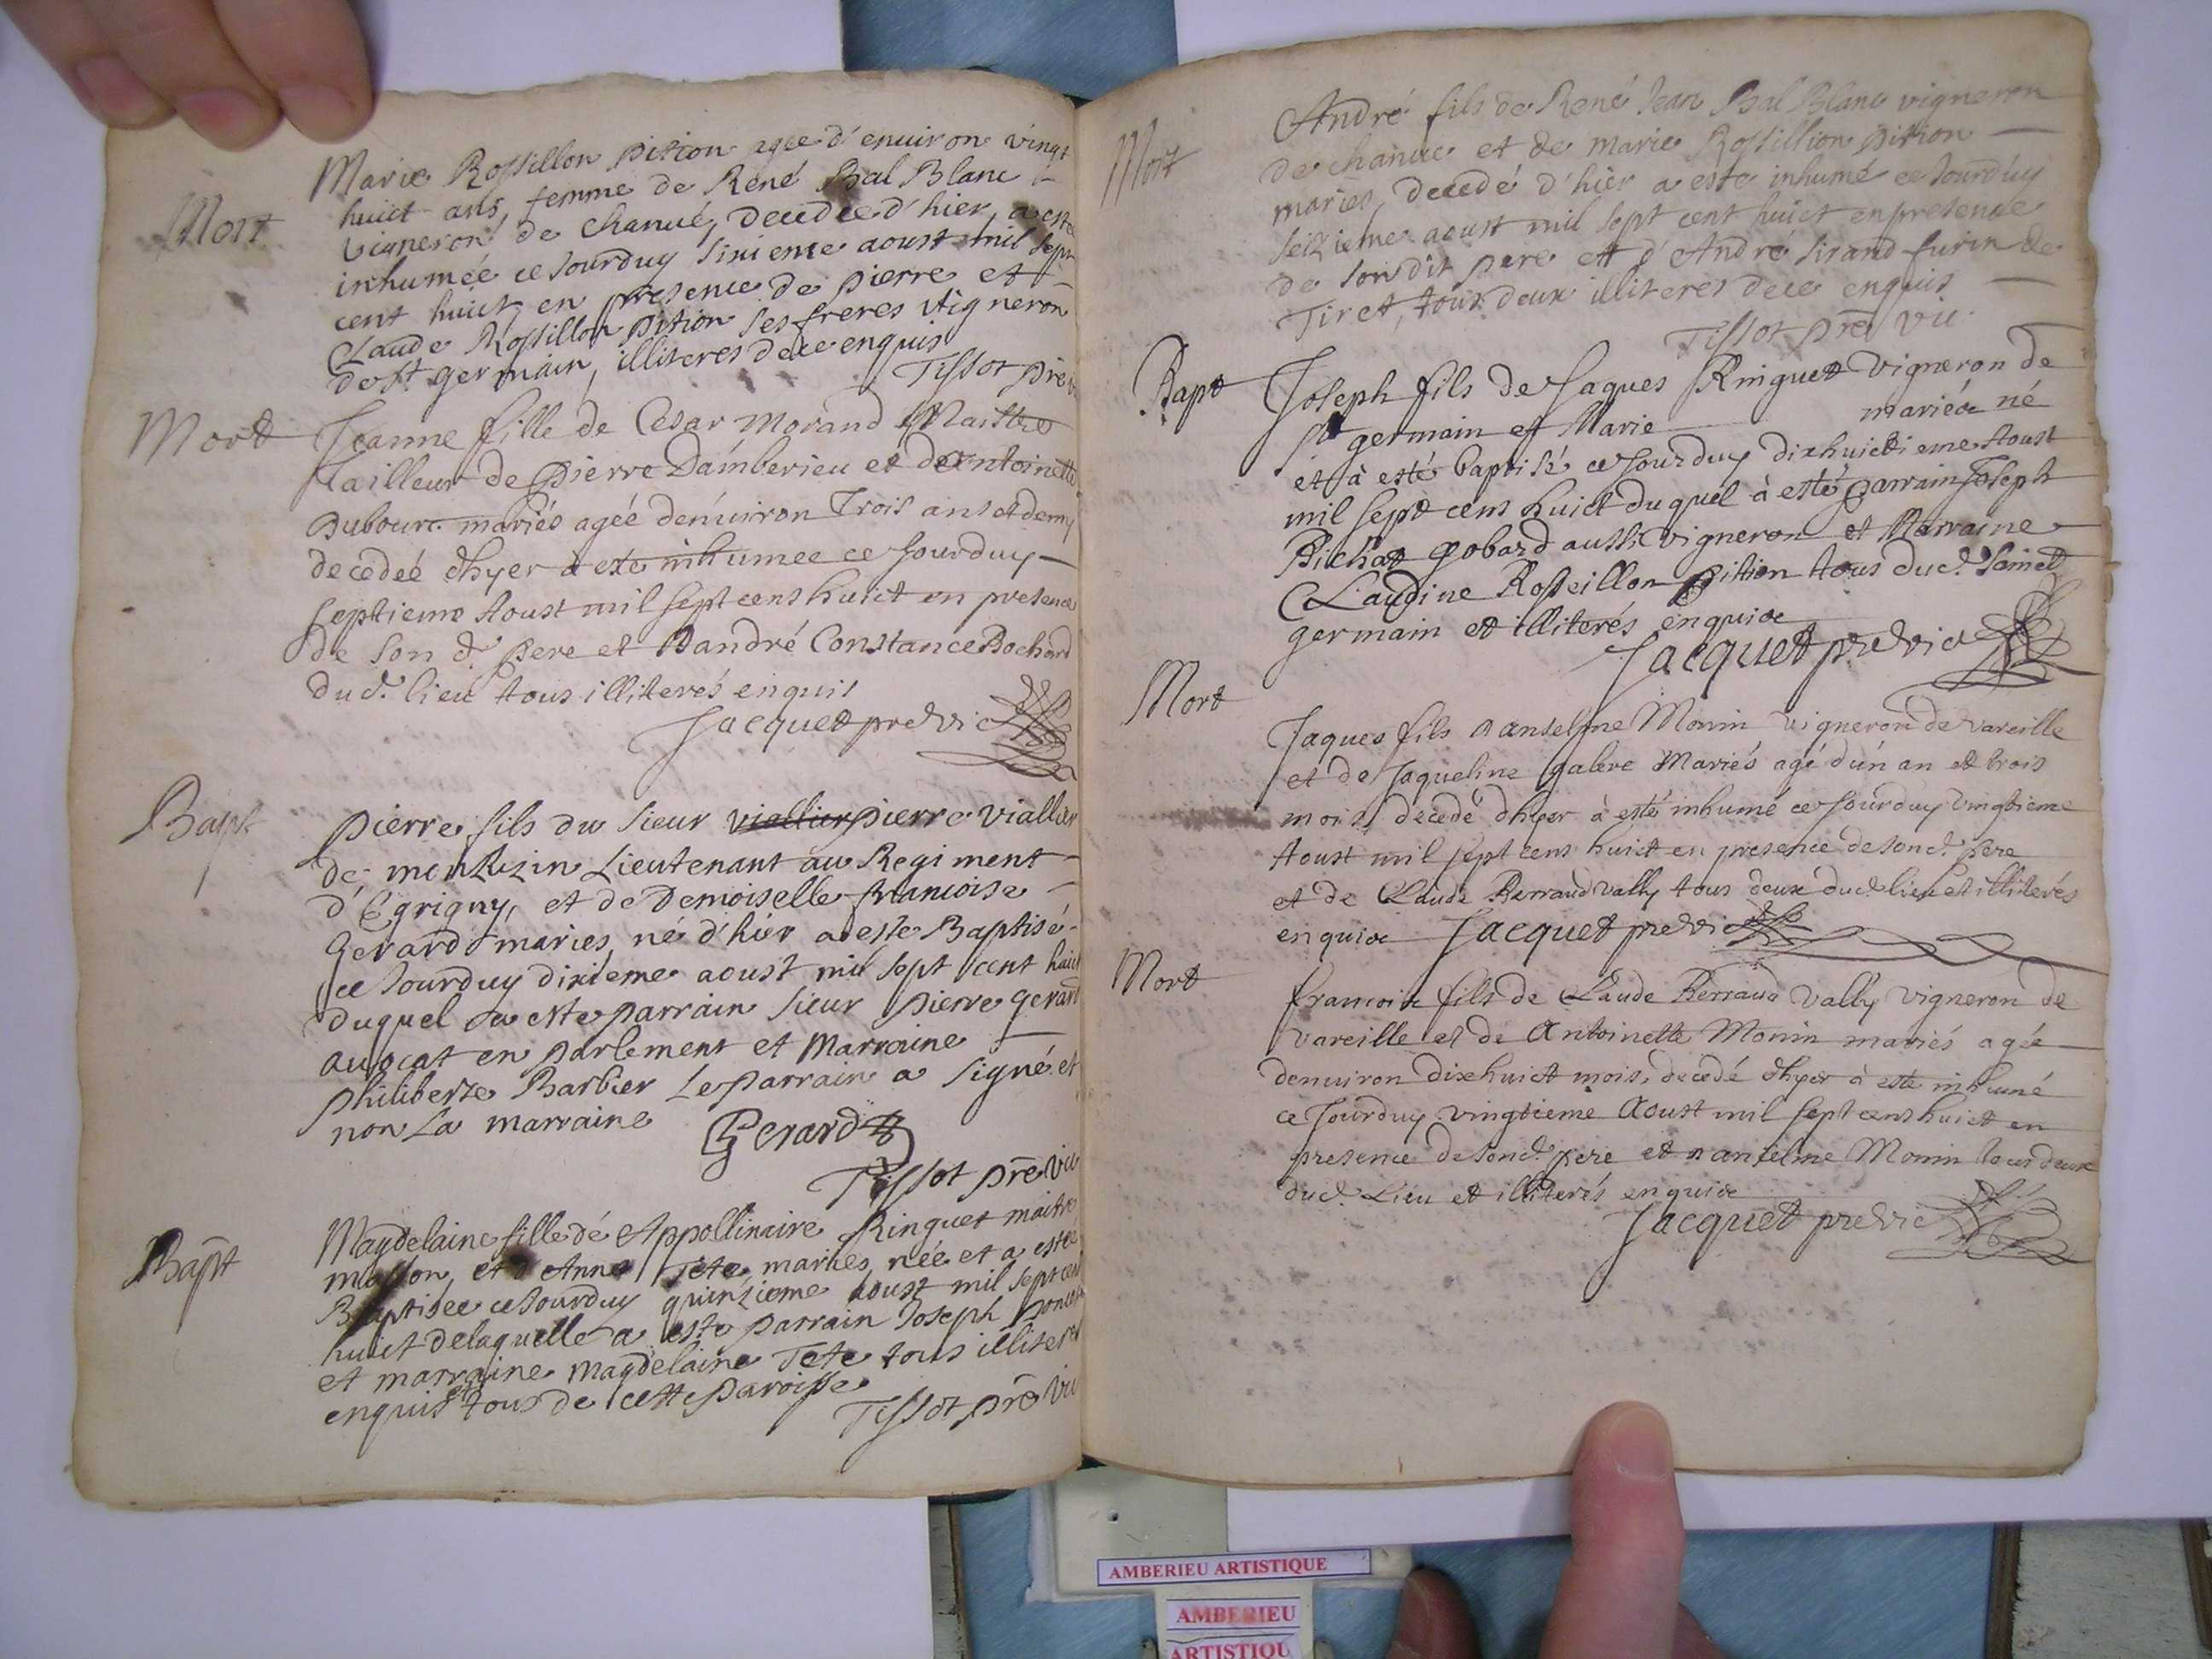 Mort
Marie Rossillon Pition agee d'enuiron vingt
huict ans, femme de René Bal Blanc
vigneron de Chanué, decedee d'hier, a esté
inhumée ce Jourduy sixieme aoust mil sept
cent huict, en presence de pierre et
Claude Rossillon Pition ses freres vigneron
de St germain, illiteres de ce enquis
Tissot pre
Mort
Jeanne fille de Cesar Morand Maistre
Tailleur de pierre Damberieu et de Antoinette
Dubourc mariés agéé denuiron Trois ans et demy
decedeé dhyer à esté inhumee ce Jourduy
septieme Aoust mil sept cens huict en presence
de son d. pere et Dandré Constance Bochard
dud. lieu tous illiterés enquis
Jacquet pre vic
Bapt
pierre fils du sieur viallier pierre viallier
de monlezin Lieutenant au Regiment
d'Egrigny, et de Demoiselle francoise
Gerard maries, né d'hier a esté Baptisé
ce Jourduy dixieme aoust mil sept cent huict
duquel a esté parrain sieur pierre gerard
auocat en parlement et Marraine
philiberte Barbier Le parrain a signé et
non La marraine
Gerard
Tissot pre vic
Bapt
Magdelaine fille dé Appollinaire Ringuet maitre
masson, et d'Anne Tete, mariés, née et a esté
Baptisee ce Jourduy quinzieme aoust mil sept cent
huict de laquelle a esté parrain Joseph
et marraine magdelaine Tete tous illiteres
enquis et tous de cette paroisse
Tissot pre vic
Mort
André fils de René Jean Bal Blanc vigneron
de chanue et de marie Rossillion pition
maries, decedé d'hier a esté inhumé ce Jourduy
seizieme aoust mil sept cent huict en presence
de son dit pere et d'André sirand furin de
Tiret, tous deux illiteres de ce enquis
Tissot pre vic
Bapt
Joseph fils de Jaques Ringuet vigneron de
St germain et Marie mariéz né
et à esté baptisé ce Jourduy dixhuictieme Aoust
mil sept cens huict duquel à esté parrain Joseph
Bichat gobard aussi vigneron et Marraine
Claudine Rosseillon pition tous dud. Sainct
germain et illiterés enquise
Jacquet pre vic
Mort
Jaques fils danselme Monin vigneron de vareille
et de Jaqueline galere Mariés agé d'un an et trois
mois, decedé dhyer à esté inhumé ce Jourduy vingtieme
Aoust mil sept cens huict en presence de son d. pere
et de Claude Berraud vally tous deux dud. lieu et illiterés
enquise Jacquet pre vic
Mort
francois fils de Claude Berraud vally vigneron de
vareille et de Antoinette Monin mariés agé
denuiron dixhuict mois, decedé dhyer à esté inhumé
ce Jourduy vingtieme Aoust mil sept cens huict en
presence de son d. pere et danselme Monin tous deux
dud. Lieu et illiterés enquise
Jacquet pre vic
AMBERIEU ARTISTIQUE
AMBERIEU
ARTISTIQU